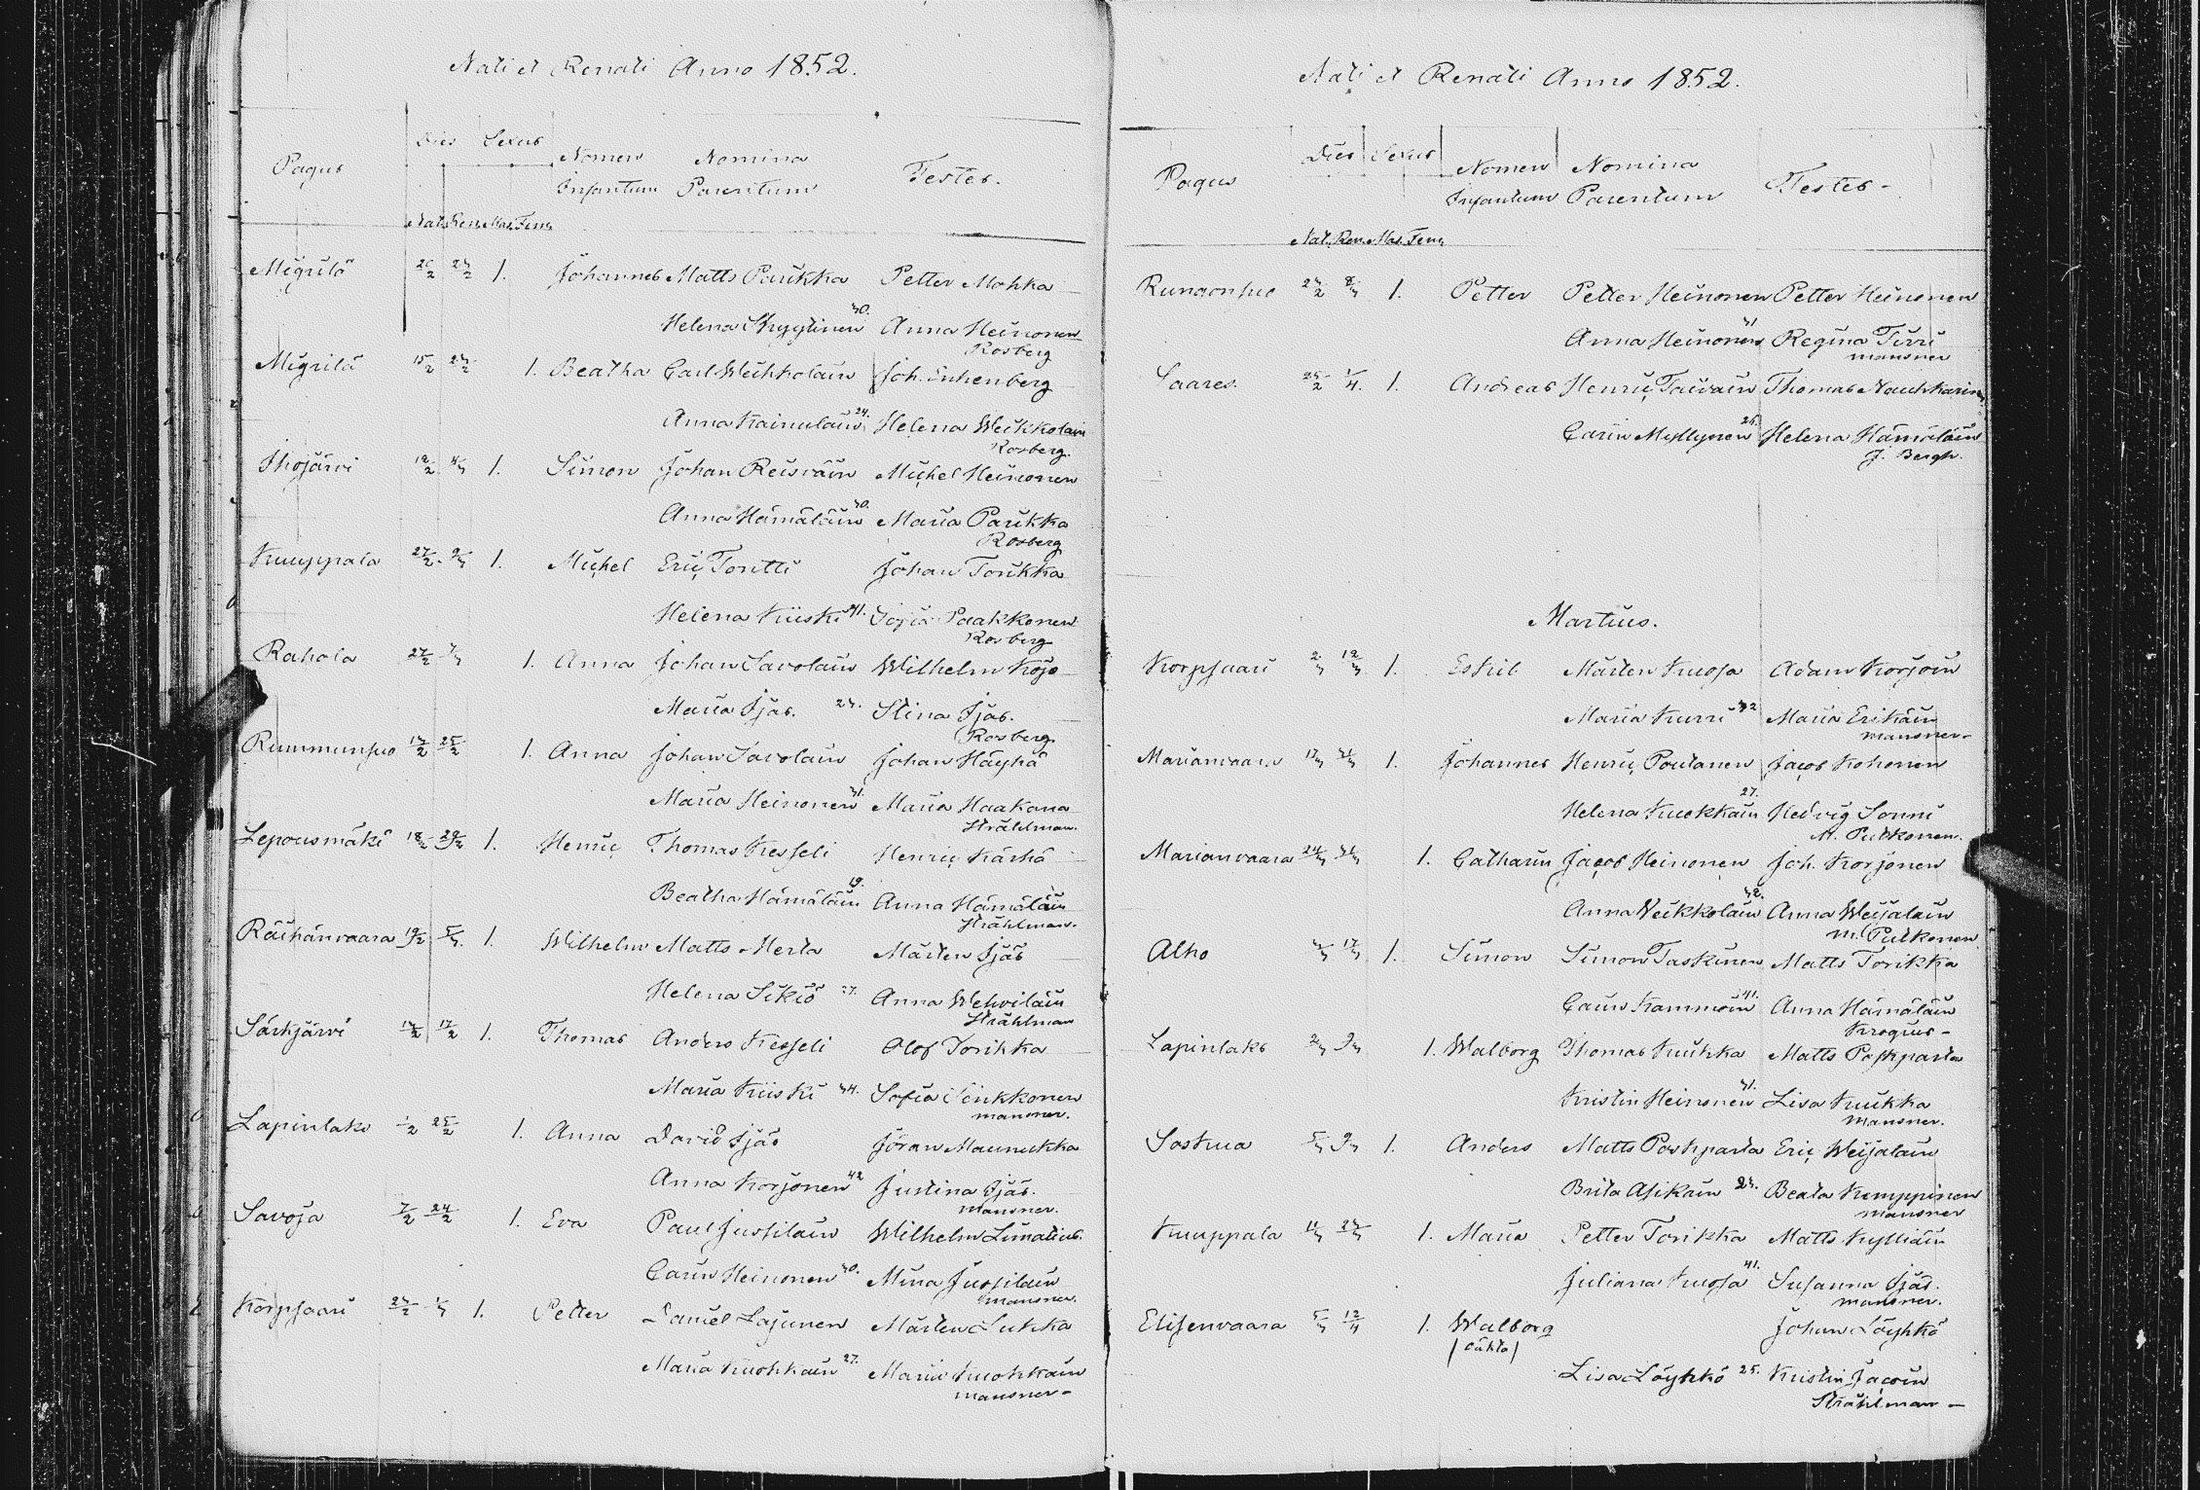 Nati et Renati Anno 1852.
Pagus Dies Sexus Nomen Infantum Nomina Parentum Testes.
Nat. Ren. Mas. Fem.
Migrilä 2/2 1. Johannes Matts Parikka Petter Mohka
Helena 40. Anna Heinonen
Rosberg
Migrilä 15/2 24/2 1. Beatha Carl Weikkolain Joh. Enkenberg
Anna Kainulain 24. Helena Weikkolain
Rosberg.
Ihojärvi 1. Simon Johan Reisväin Michel Heinonen
Anna Hämäläin 40. Maria Parikka
Rosberg
Kuuppala 27/2 1. Michel Eric Toritti Johan Torikka
Helena Kiiski 41. Sofia Paakkonen
Rosberg
Rahola 27/2 1. Anna Johan Savolain Wilhelm Kojo
Maria Sjäs. Stina Sjäs.
Rosberg
Rummunsuo 25/2 1. Anna Johan Savolain Johan Häyhä
Maria Heinonen Maria Haakana
Strählman.
Lepousmäki 18/2 29/2 1. Henric Thomas Kesseli Henric Kärhä
Beatha Hämäläin 19. Anna Hämäläin
Strählman.
Räihänvaara 19/2 5/3 1. Wilhelm Matts Merta Mårten Sjäs
Helena Sikiö Anna Wehviläin
Strählman
Särkjärvi 17/2 1. Thomas Anders Kesseli Olof Torikka
Maria Kiiski 34. Sofia Sinkkonen
mansner.
Lapinlaks 25/2 1. Anna David Sjäs Jöran Maunukka
Anna Korjonen 42 Justina Sjäs.
mansner.
Savoja 7/2 24/2 1. Eva Paul Jussilain Wilhelm Limatius.
Carin Heinonen 40. Mina Jussilain
mansner.
Korpsaari 1/3 1. Petter Daniel Lajunen Mårten Sukka
Maria Kuokkain 27. Maria Kuokkain
mansner-
Nati et Renati Anno 1852.
Pagus Dies Sexus Nomen Infantum Nomina Parentum Testes-
Nat. Ren. Mas. Fem.
1. Petter Petter Heinonen Petter Heinonen
Anna Heinonen Regina Tirri
mansner
Saares. 25/2 1/4. 1. Andreas Henric Taivain Thomas Naukkarin
Carin Myllynen 25. Helena Hämäläin
J. Bergh.
Martius.
Korpsaari 2/3 12/3 1. Eskil Mårten Kuosa Adam Korjoin
Maria Kurri 32 Maria Erikäin
mansner-
Marianvaara 1. Johannes Henric Poutanen Jacob Kohonen
Helena Kuekkain 27. Hedvig Sonni
M. Pukkonen.
Marianvaara 1. Catharin Jacob Heinonen Joh. Korjonen
Anna Weikkolain 42. Anna Weijalain
M. Pulkonen
Alho 17/3 1. Simon Simon Taskinen Matts Torikka
Carin Kammoin 41. Anna Hämäläin
Krogius-
Lapinlaks 2/3 9/3 1. Walborg Thomas Kuikka Matts Poskparta
Kristin Heinonen 31. Lisa Kuikka
Mansner.
Soskua 5/3 9/3 1. Anders Matts Poskparta Eric Weijalain
Brita Asikain Beata Kemppinen
mansner
Kuuppala 1. Maria Petter Torikka Matts Kylliäin
Juliana Kuosa 41. Susanna Sjäs.
mansner.
Elisenvaara 5/3 12/4 1. Walborg Johan Löyhkö
/oäkta/
Lisa Löyhkö 25. Kristin Jacoin
Strählman-